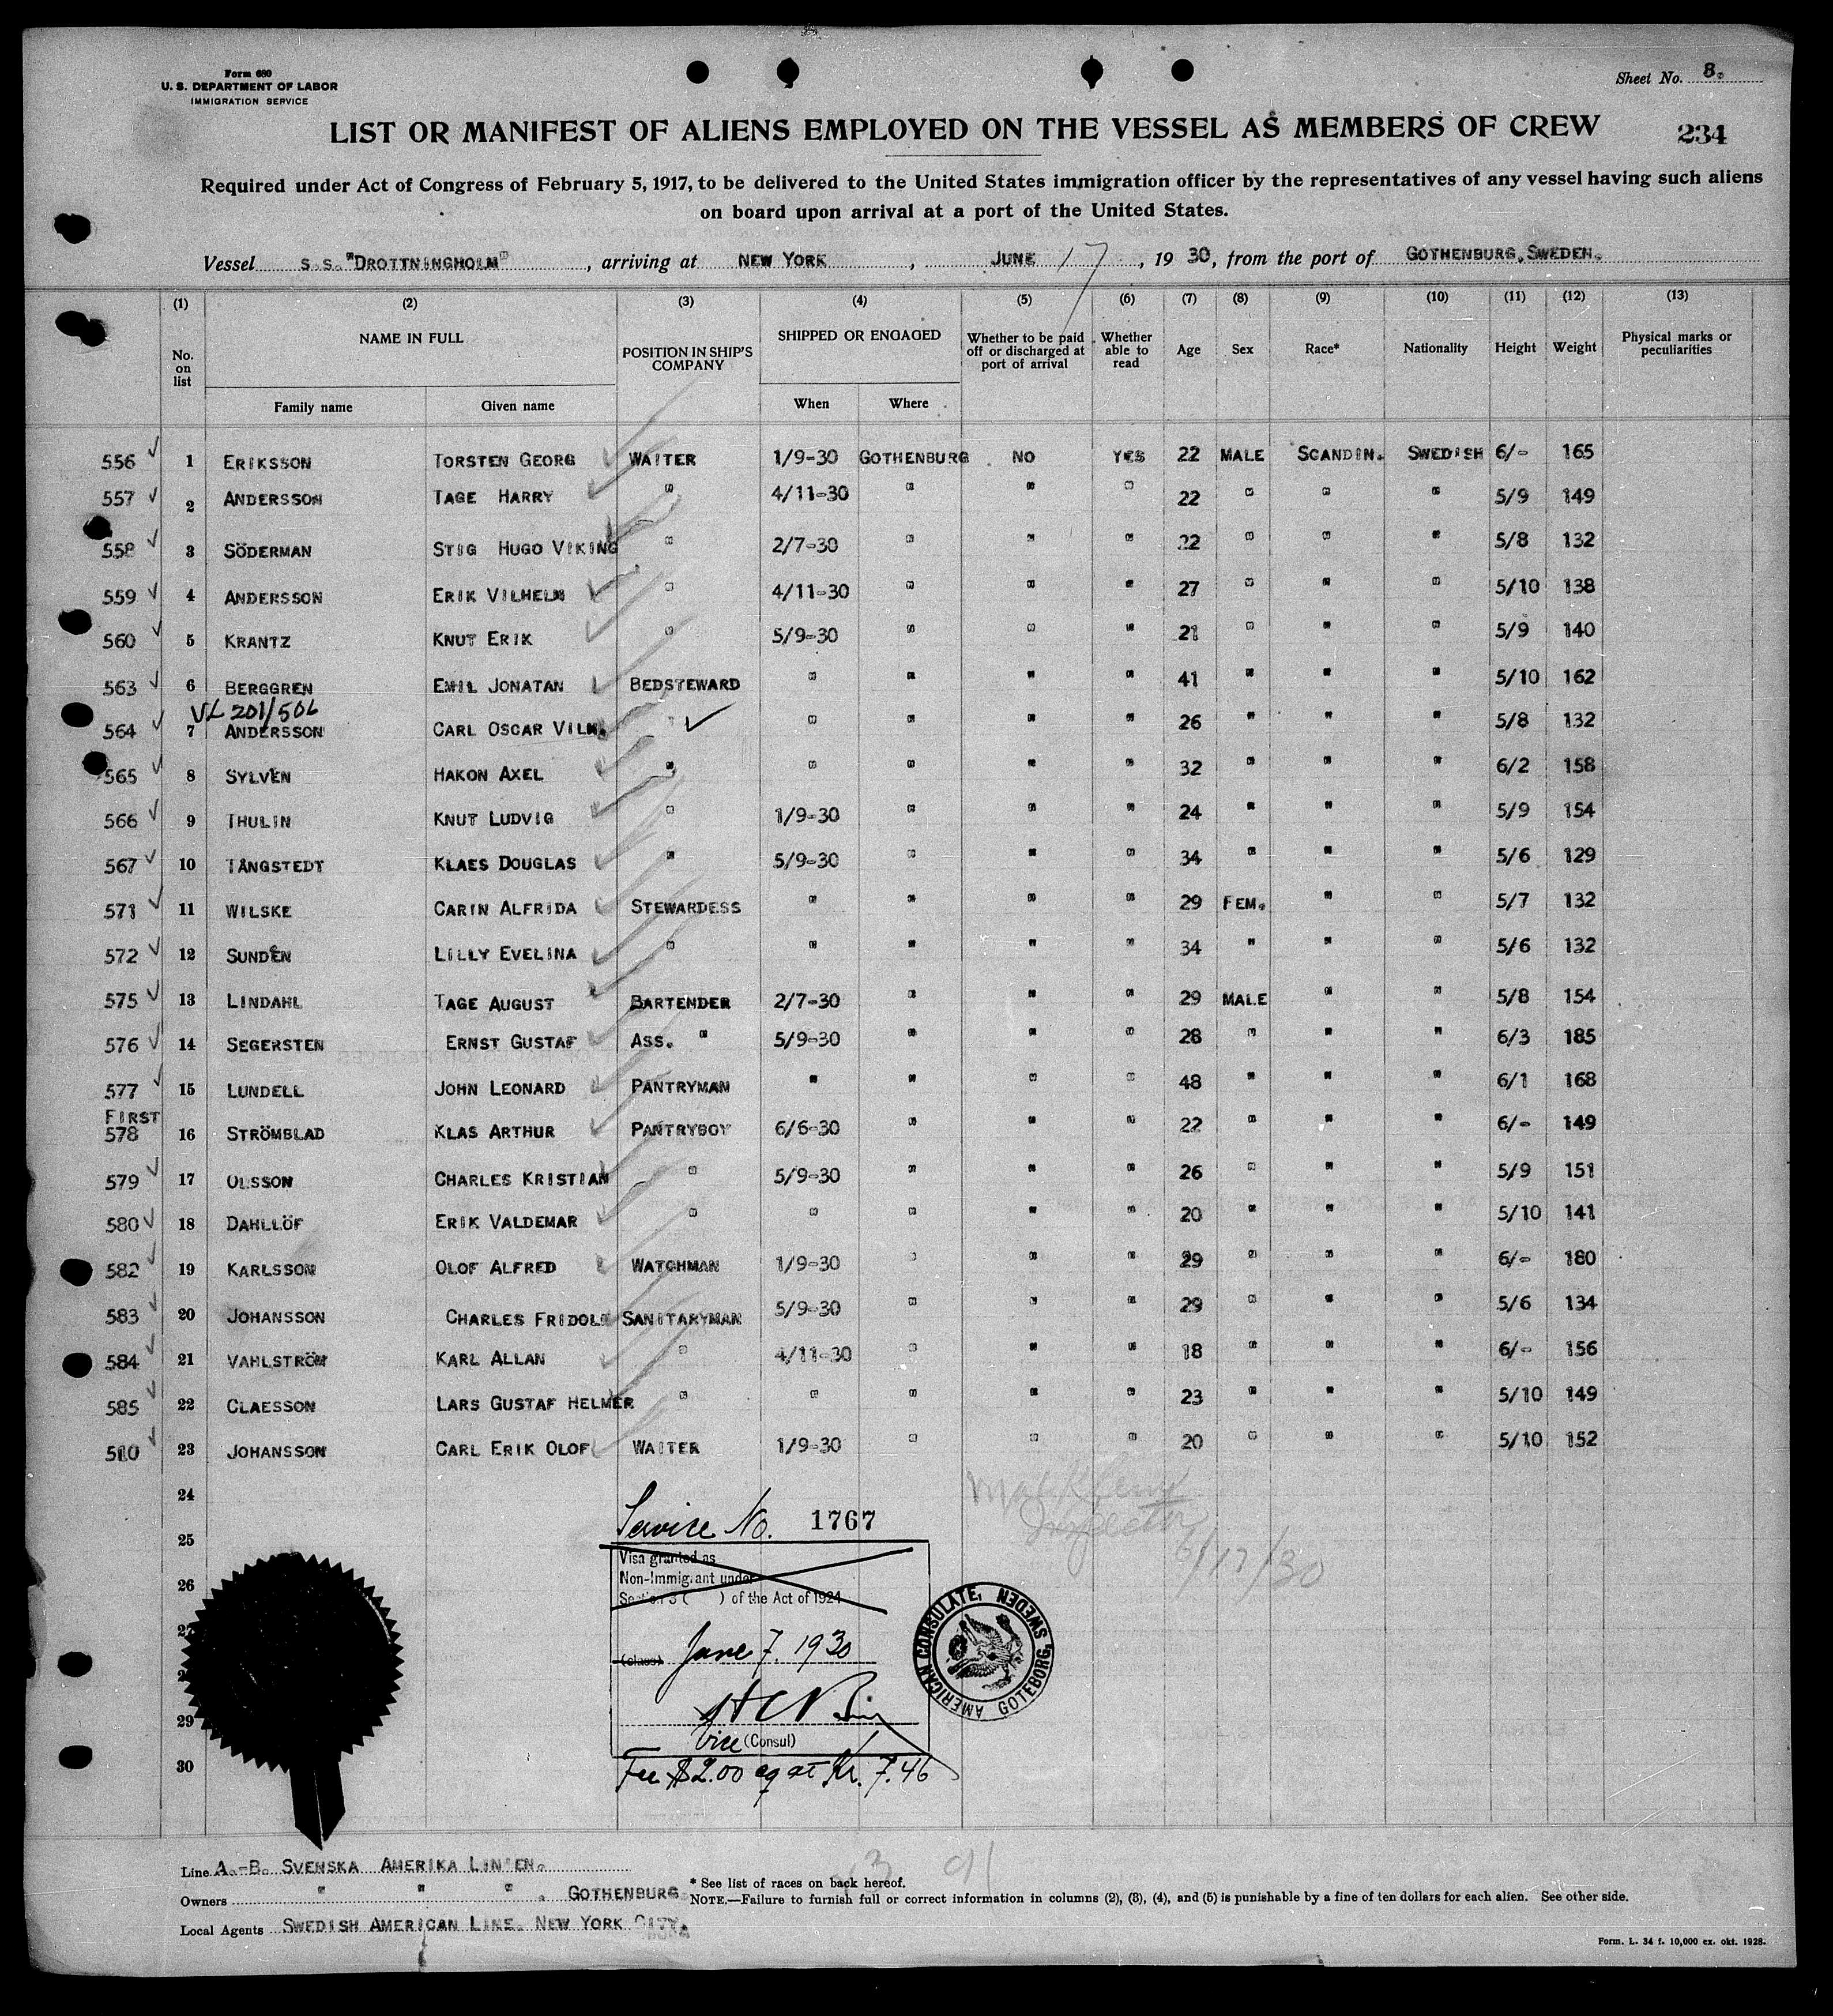 Form 680
U. S. DEPARTMENT OF LABOR
IMMIGRATION SERVICE
Sheet No. 8.
LIST OR MANIFEST OF ALIENS EMPLOYED ON THE VESSEL AS MEMBERS OF CREW
234
Required under Act of Congress of February 5, 1917, to be delivered to the United States immigration officer by the representatives of any vessel having such aliens
on board upon arrival at a port of the United States.
Vessel S.S. "DROTTNINGHOLM", arriving at NEW YORK, JUNE 17, 1930, from the port of GOTHENBURG, SWEDEN.
(1) (2) (3) (4) (5) (6) (7) (8) (9) (10) (11) (12) (13)
No. on list NAME IN FULL POSITION IN SHIP'S COMPANY SHIPPED OR ENGAGED Whether to be paid off or discharged at port of arrival Whether able to read Age Sex Race* Nationality Height Weight Physical marks or peculiarities
Family name Given name When Where
556 1 ERIKSSON TORSTEN GEORG WAITER 1/9-30 GOTHENBURG NO YES 22 MALE SCANDIN. SWEDISH 6/- 165
557 2 ANDERSSON TAGE HARRY " 4/11-30 " " " 22 " " " 5/9 149
558 3 SÖDERMAN STIG HUGO VIKING " 2/7-30 " " " 22 " " " 5/8 132
559 4 ANDERSSON ERIK VILHELM " 4/11-30 " " " 27 " " " 5/10 138
560 5 KRANTZ KNUT ERIK " 5/9-30 " " " 21 " " " 5/9 140
563 6 BERGGREN EMIL JONATAN BEDSTEWARD " " " " 41 " " " 5/10 162
VL 201/506
564 7 ANDERSSON CARL OSCAR VILH. " " " " " 26 " " " 5/8 132
565 8 SYLVÉN HAKON AXEL " " " " " 32 " " " 6/2 158
566 9 THULIN KNUT LUDVIG " 1/9-30 " " " 24 " " " 5/9 154
567 10 TÅNGSTEDT KLAES DOUGLAS " 5/9-30 " " " 34 " " " 5/6 129
571 11 WILSKE CARIN ALFRIDA STEWARDESS " " " " 29 FEM. " " 5/7 132
572 12 SUNDÉN LILLY EVELINA " " " " " 34 " " " 5/6 132
575 13 LINDAHL TAGE AUGUST BARTENDER 2/7-30 " " " 29 MALE " " 5/8 154
576 14 SEGERSTEN ERNST GUSTAF ASS. " 5/9-30 " " " 28 " " " 6/3 185
577 15 LUNDELL JOHN LEONARD PANTRYMAN " " " " 48 " " " 6/1 168
FIRST
578 16 STRÖMBLAD KLAS ARTHUR PANTRYBOY 6/6-30 " " " 22 " " " 6/- 149
579 17 OLSSON CHARLES KRISTIAN " 5/9-30 " " " 26 " " " 5/9 151
580 18 DAHLLÖF ERIK VALDEMAR " " " " " 20 " " " 5/10 141
582 19 KARLSSON OLOF ALFRED WATCHMAN 1/9-30 " " " 29 " " " 6/- 180
583 20 JOHANSSON CHARLES FRIDOL SANITARYMAN 5/9-30 " " " 29 " " " 5/6 134
584 21 VAHLSTRÖM KARL ALLAN " 4/11-30 " " " 18 " " " 6/- 156
585 22 CLAESSON LARS GUSTAF HELMER " " " " " 23 " " " 5/10 149
510 23 JOHANSSON CARL ERIK OLOF WAITER 1/9-30 " " " 20 " " " 5/10 152
24
Service No. 1767
Inspector
6/17/30
25
Visa granted as
Non-Immigrant under
Section 3 ( ) of the Act of 1924
26
AMERICAN CONSULATE, GOTEBORG, SWEDEN
(class) June 7. 1930
29
Vice (Consul)
30
Fee $2.00 eq at Kr. 7.46
Line A.-B. SVENSKA AMERIKA LINIEN.
* See list of races on back hereof.
Owners " " " . GOTHENBURG
NOTE.—Failure to furnish full or correct information in columns (2), (3), (4), and (5) is punishable by a fine of ten dollars for each alien. See other side.
Local Agents SWEDISH AMERICAN LINE. NEW YORK CITY.
Form. L. 34 f. 10,000 ex. okt. 1928.